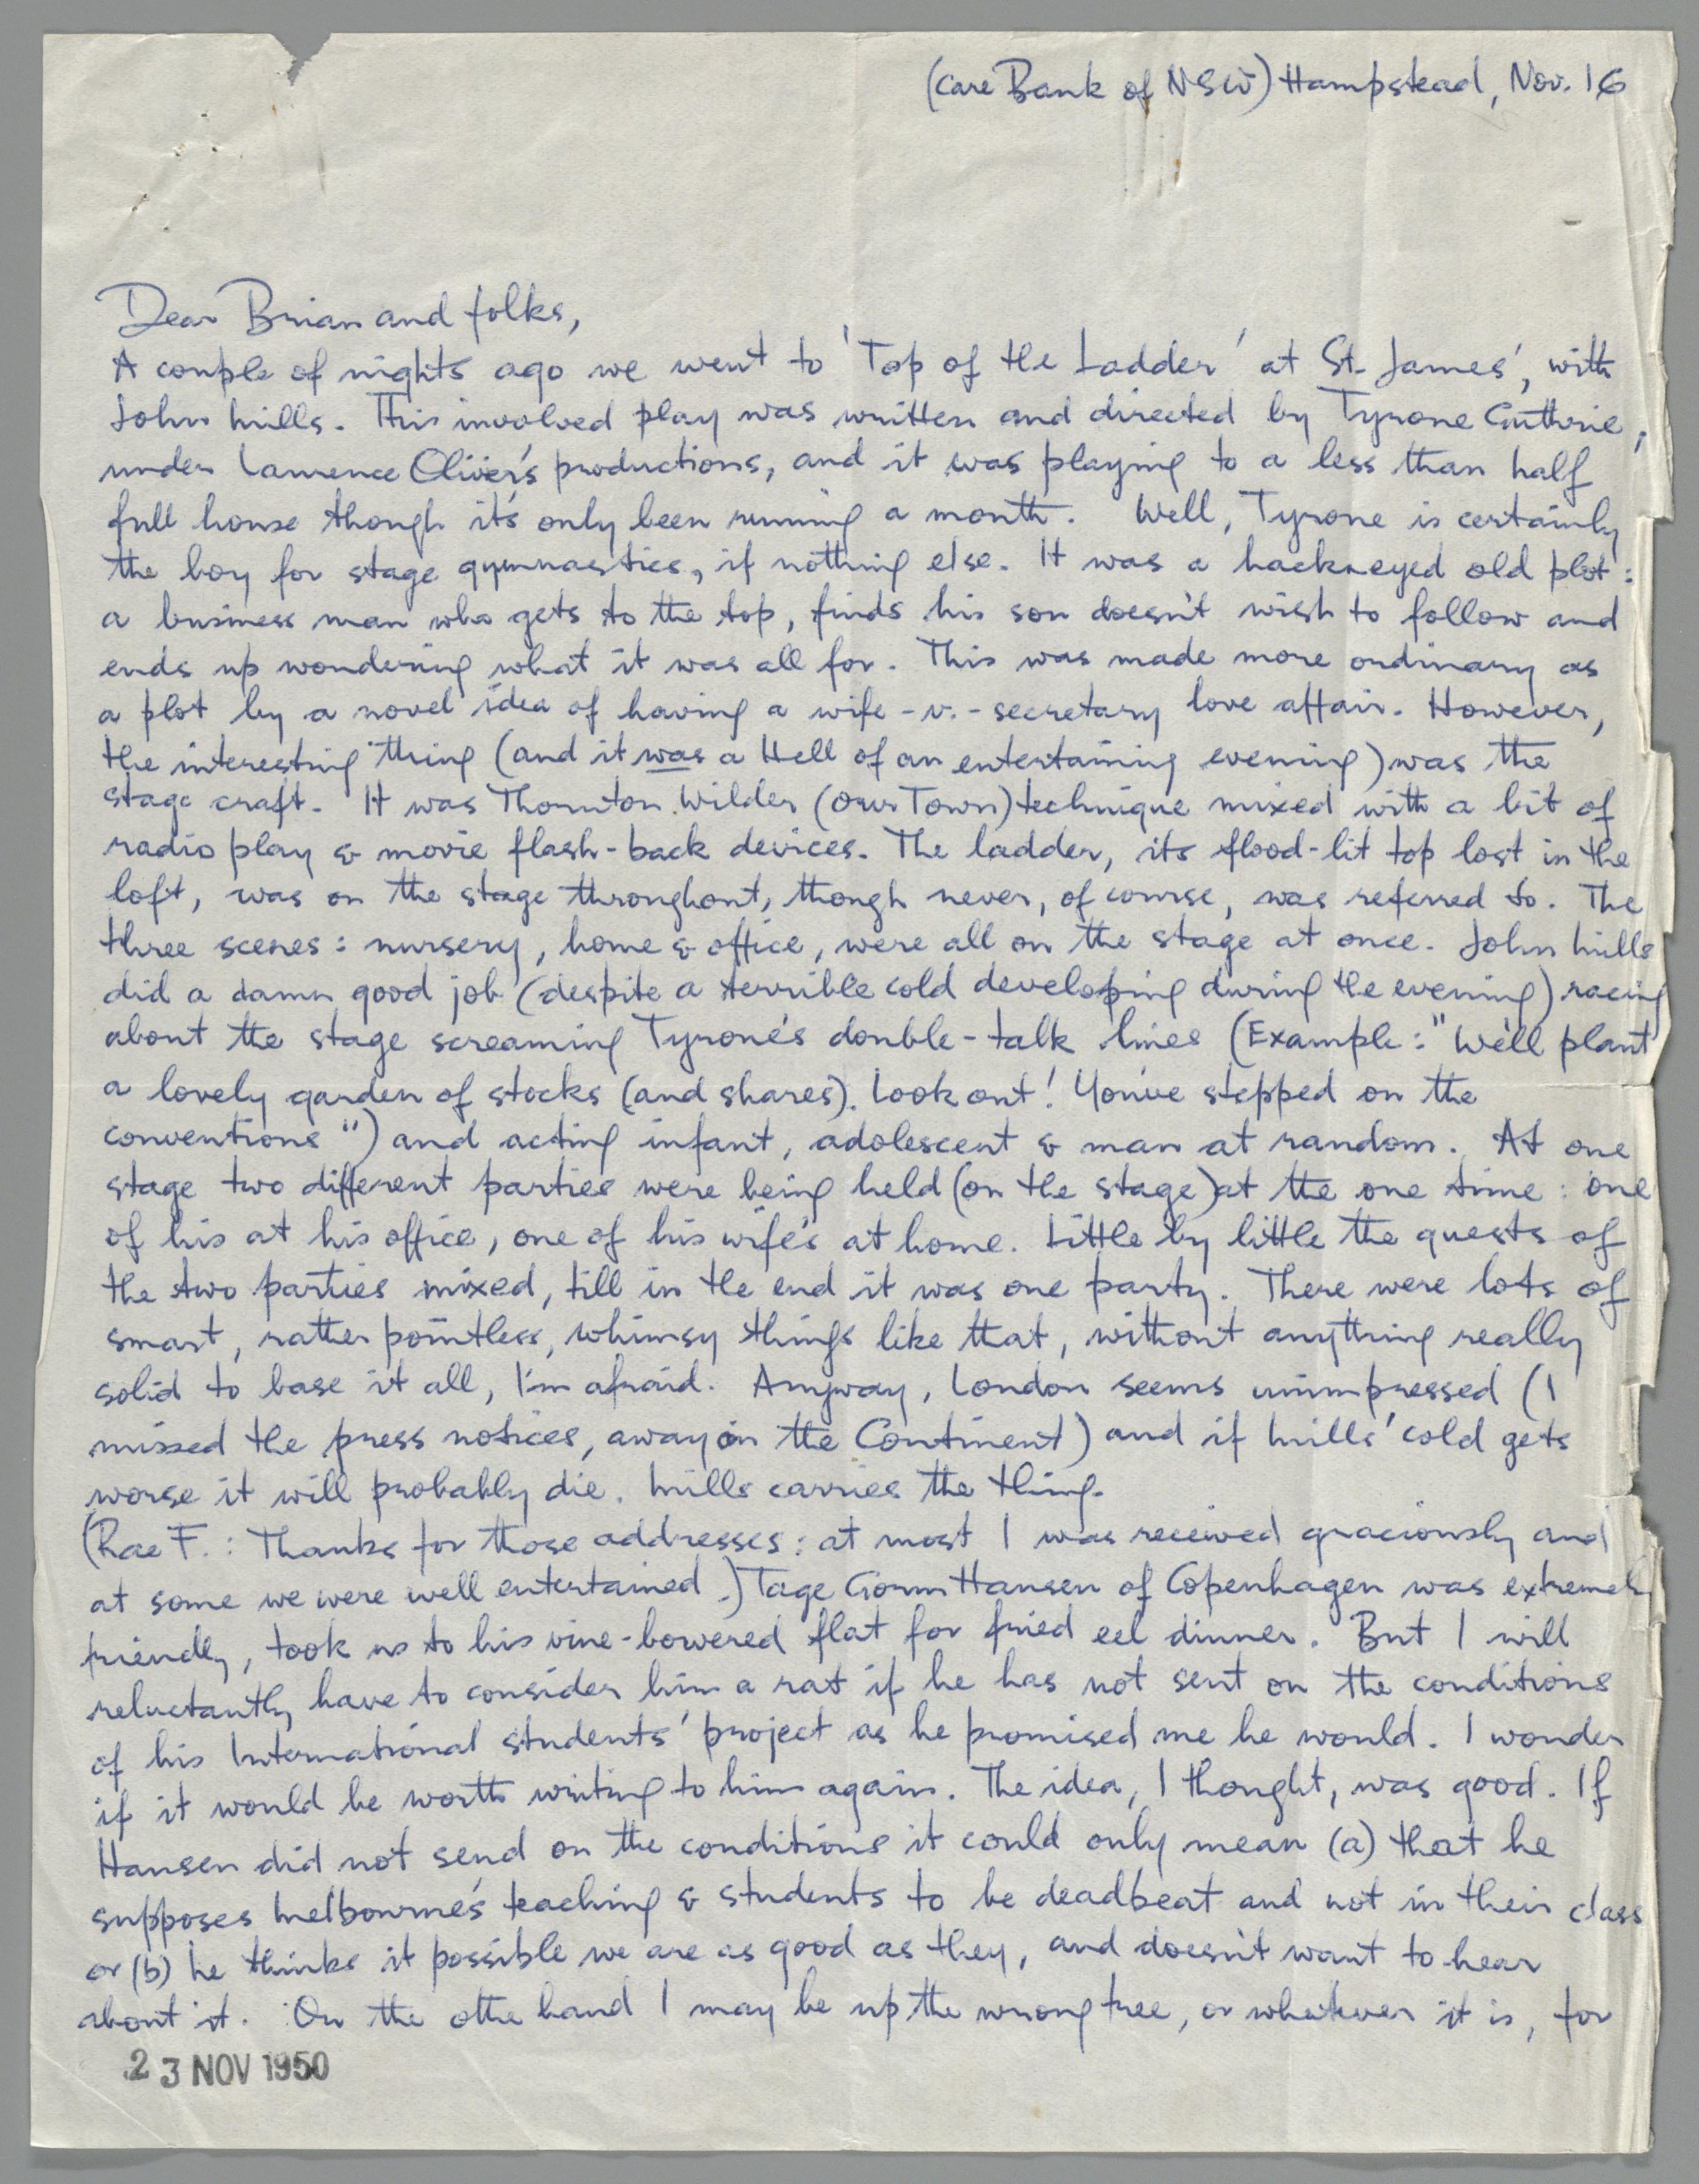 (care Bank of NSW) Hampstead, Nov. 16
Dear Brian and folks,
A couple of nights ago we went to 'Top of the Ladder' at St. James', with
John Mills. This involved play was written and directed by Tyrone Guthrie,
under Laurence Olivier's productions, and it was playing to a less than half
full house though it's only been running a month. Well, Tyrone is certainly
the boy for stage gymnastics, if nothing else. It was a hackneyed old plot:
a business man who gets to the top, finds his son doesn't wish to follow and
ends up wondering what it was all for. This was made more ordinary as
a plot by a novel idea of having a wife-v.-secretary love affair. However,
the interesting thing (and it was a Hell of an entertaining evening) was the
stage craft. It was Thornton Wilder (Our Town) technique mixed with a bit of
radio play & movie flash-back devices. The ladder, its flood-lit top lost in the
loft, was on the stage throughout, though never, of course, was referred to. The
three scenes: nursery, home & office, were all on the stage at once. John Mills
did a damn good job (despite a terrible cold developing during the evening) racing
about the stage screaming Tyrone's double-talk lines (Example: "We'll plant
a lovely garden of stocks (and shares). Look out! You've stepped on the
conventions") and acting infant, adolescent & man at random. At one
stage two different parties were being held (on the stage) at the one time: one
of his at his office, one of his wife's at home. Little by little the guests of
the two parties mixed, till in the end it was one party. There were lots of
smart, rather pointless, whimsy things like that, without anything really
solid to base it all, I'm afraid. Anyway, London seems unimpressed (I
missed the press notices, away on the Continent) and if Mills' cold gets
worse it will probably die. Mills carries the thing.
(Rae F.: Thanks for those addresses: at most I was received graciously and
at some we were well entertained.) Tage Gorm Hansen of Copenhagen was extremely
friendly, took us to his vine-bowered flat for fried eel dinner. But I will
reluctantly have to consider him a rat if he has not sent on the conditions
of his International students' project as he promised me he would. I wonder
if it would be worth writing to him again. The idea, I thought, was good. If
Hansen did not send on the conditions it could only mean (a) that he
supposes Melbourne's teaching & students to be deadbeat and not in their class
or (b) he thinks it possible we are as good as they, and doesn't want to hear
about it. On the othe hand I may be up the wrong tree, or whatever it is, for
23 NOV 1950